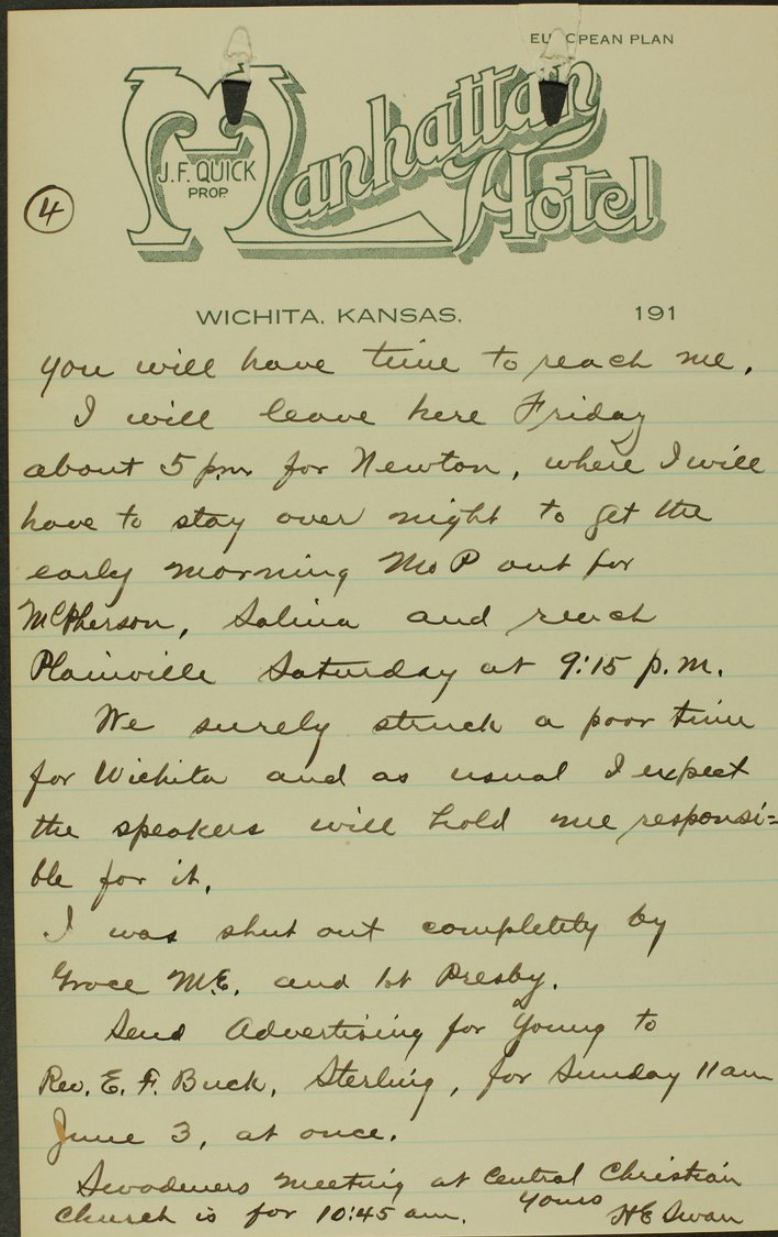 EUROPEAN PLAN
Manhattan
Hotel
J.F. QUICK
PROP.
4
WICHITA, KANSAS. 191
you will have time to reach me.
I will leave here Friday
about 5 pm for Newton, where I will
have to stay over night to get the
early morning Mo P out for
McPherson, Salina and reach
Plainville Saturday at 9:15 p.m.
We surely struck a poor time
for Wichita and as usual I expect
the speakers will hold me responsi=
ble for it.
I was shut out completely by
Grace M.E. and 1st Presby.
Send Advertising for Young to
Rev. E. F. Buck, Sterling, for Sunday 11 am
June 3, at once.
Swadeners meeting at Central Christian
Church is for 10:45 am. Yours H E Swan